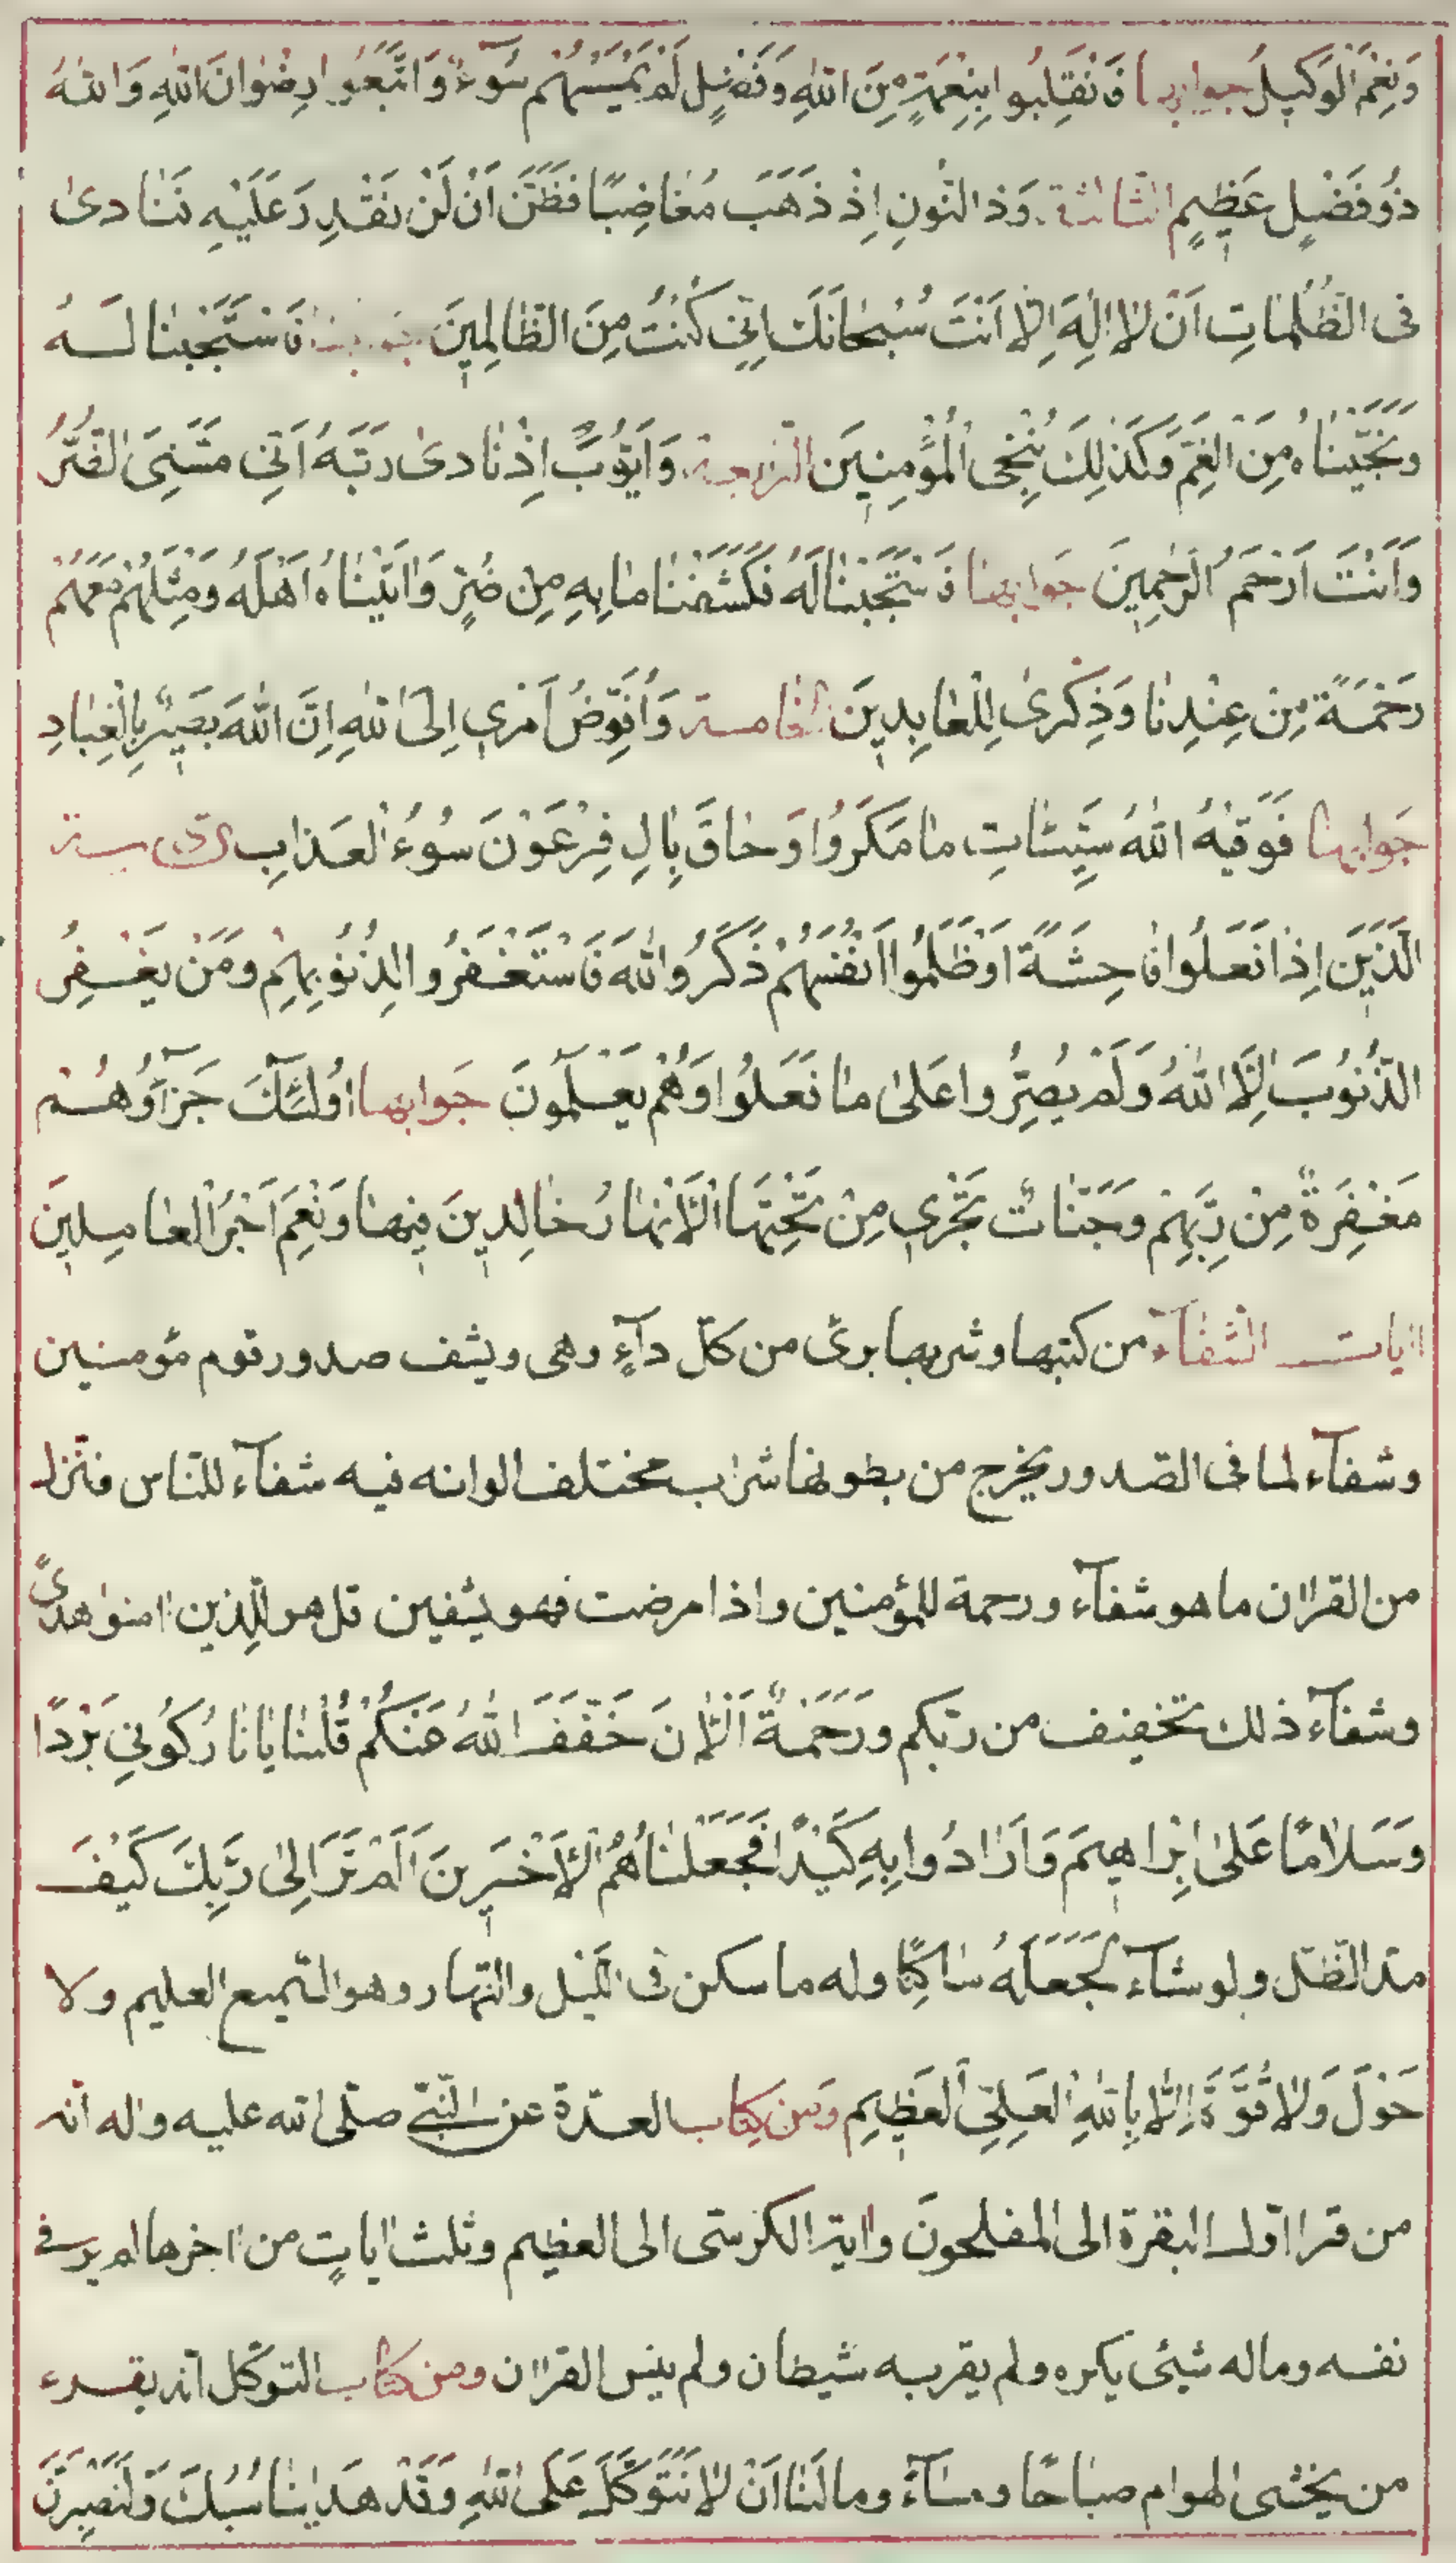 وَنِعْمَ الْوَكِيلُ جوابها فَانْقَلِبُوا بِنِعْمَةٍ مِنَ اللهِ وَفَضْلٍ لَمْ يَمْسَسْهُمْ سُوۤءٌ وَاتَّبَعُوا رِضْوَانَ اللهِ وَاللهُ
ذُو فَضْلٍ عَظِيمٍ الثالثة وَذَا النُّونِ اِذْ ذَهَبَ مُغَاضِبًا فَظَنَّ اَنْ لَنْ نَقْدِرَ عَلَيْهِ فَنَادىٰ
فى الظُّلُمَاتِ اَنْ لَا اِلٰهَ اِلَّا اَنْتَ سُبْحَانَكَ اِنِّى كُنْتُ مِنَ الظَّالِمِينَ جوابها فَاسْتَجَبْنَا لَهُ
وَنَجَّيْنَاهُ مِنَ الْغَمِّ وَكَذٰلِكَ نُنْجِى الْمُؤْمِنِينَ الرابعة وَاَيُّوبَ اِذْ نَادىٰ رَبَّهُ اَنِّى مَسَّنِىَ الضُّرُّ
وَاَنْتَ اَرْحَمُ الرَّاحِمِينَ جوابها فَاسْتَجَبْنَا لَهُ فَكَشَفْنَا مَا بِهِ مِنْ ضُرٍّ وَاٰتَيْنَاهُ اَهْلَهُ وَمِثْلَهُمْ مَعَهُمْ
رَحْمَةً مِنْ عِنْدِنَا وَذِكْرىٰ لِلْعَابِدِينَ الخامسة وَاُفَوِّضُ اَمْرِي اِلَى اللهِ اِنَّ اللهَ بَصِيرٌ بِالْعِبَادِ
جوابها فَوَقٰيهُ اللهُ سَيِّئَاتِ مَا مَكَرُوا وَحَاقَ بِاٰلِ فِرْعَوْنَ سُوۤءُ الْعَذَابِ السادسة
الَّذِينَ اِذَا فَعَلُوا فَاحِشَةً اَوْ ظَلَمُوا اَنْفُسَهُمْ ذَكَرُوا اللهَ فَاسْتَغْفَرُوا لِذُنُوبِهِمْ وَمَنْ يَغْفِرُ
الذُّنُوبَ اِلَّا اللهُ وَلَمْ يُصِرُّوا عَلىٰ مَا فَعَلُوا وَهُمْ يَعْلَمُونَ جَوابها اُولٰئِكَ جَزَاۤؤُهُمْ
مَغْفِرَةٌ مِنْ رَبِّهِمْ وَجَنَّاتٌ تَجْرِي مِنْ تَحْتِهَا الْاَنْهَارُ خَالِدِينَ فِيهَا وَنِعْمَ اَجْرُ الْعَامِلِينَ
اٰيات الشفآء من كتبها وشربها برئ من كلّ دآءٍ وهى ويشف صدور قوم مؤمنين
وشفآء لما فى الصدور يخرج من بطونها شراب مختلف الوانه فيه شفآء للنّاس وننزل
من القراٰن ما هو شفآء ورحمة للمؤمنين واذا مرضت فهو يشفين قل هو للّذين اٰمنوا هدىً
وشفآء ذلك تخفيف من ربّكم وَرَحْمَةٌ اَلْاٰنَ خَفَّفَ اللهُ عَنْكُمْ قُلْنَا يَا نَارُ كُونِي بَرْدًا
وَسَلَامًا عَلىٰ اِبْرَاهِيمَ وَاَرَادُوا بِهِ كَيْدًا فَجَعَلْنَاهُمُ الْاَخْسَرِينَ اَلَمْ تَرَ اِلىٰ رَبِّكَ كَيْفَ
مدّ الظّلّ ولو شآء لَجَعَلَهُ سَاكِنًا وله ما سكن فى اللّيل والنّهار وهو السّميع العليم ولا
حَوْلَ وَلَا قُوَّةَ اِلَّا بِاللهِ الْعَلِىِّ الْعَظِيمِ وَمِن كِتاب العدّة عن النّبىّ صلّى الله عليه واٰله انّه
من قرا اوّل البقرة الى المفلحونَ واٰية الكرسّى الى العظيم وثلث اٰياتٍ من اٰخرها لم ير فى
نفسه وماله شيئ يكره ولم يقربه شيطان ولم ينس القراٰن ومن كتاب التوكّل انّه يقرء
من يخشى الهوام صباحًا ومسآءً وما لَنَا اَنْ لَا نَتَوَكَّلَ عَلَى اللهِ وَقَدْ هَدٰينَا سُبُلَنَا وَلَنَصْبِرَنَّ